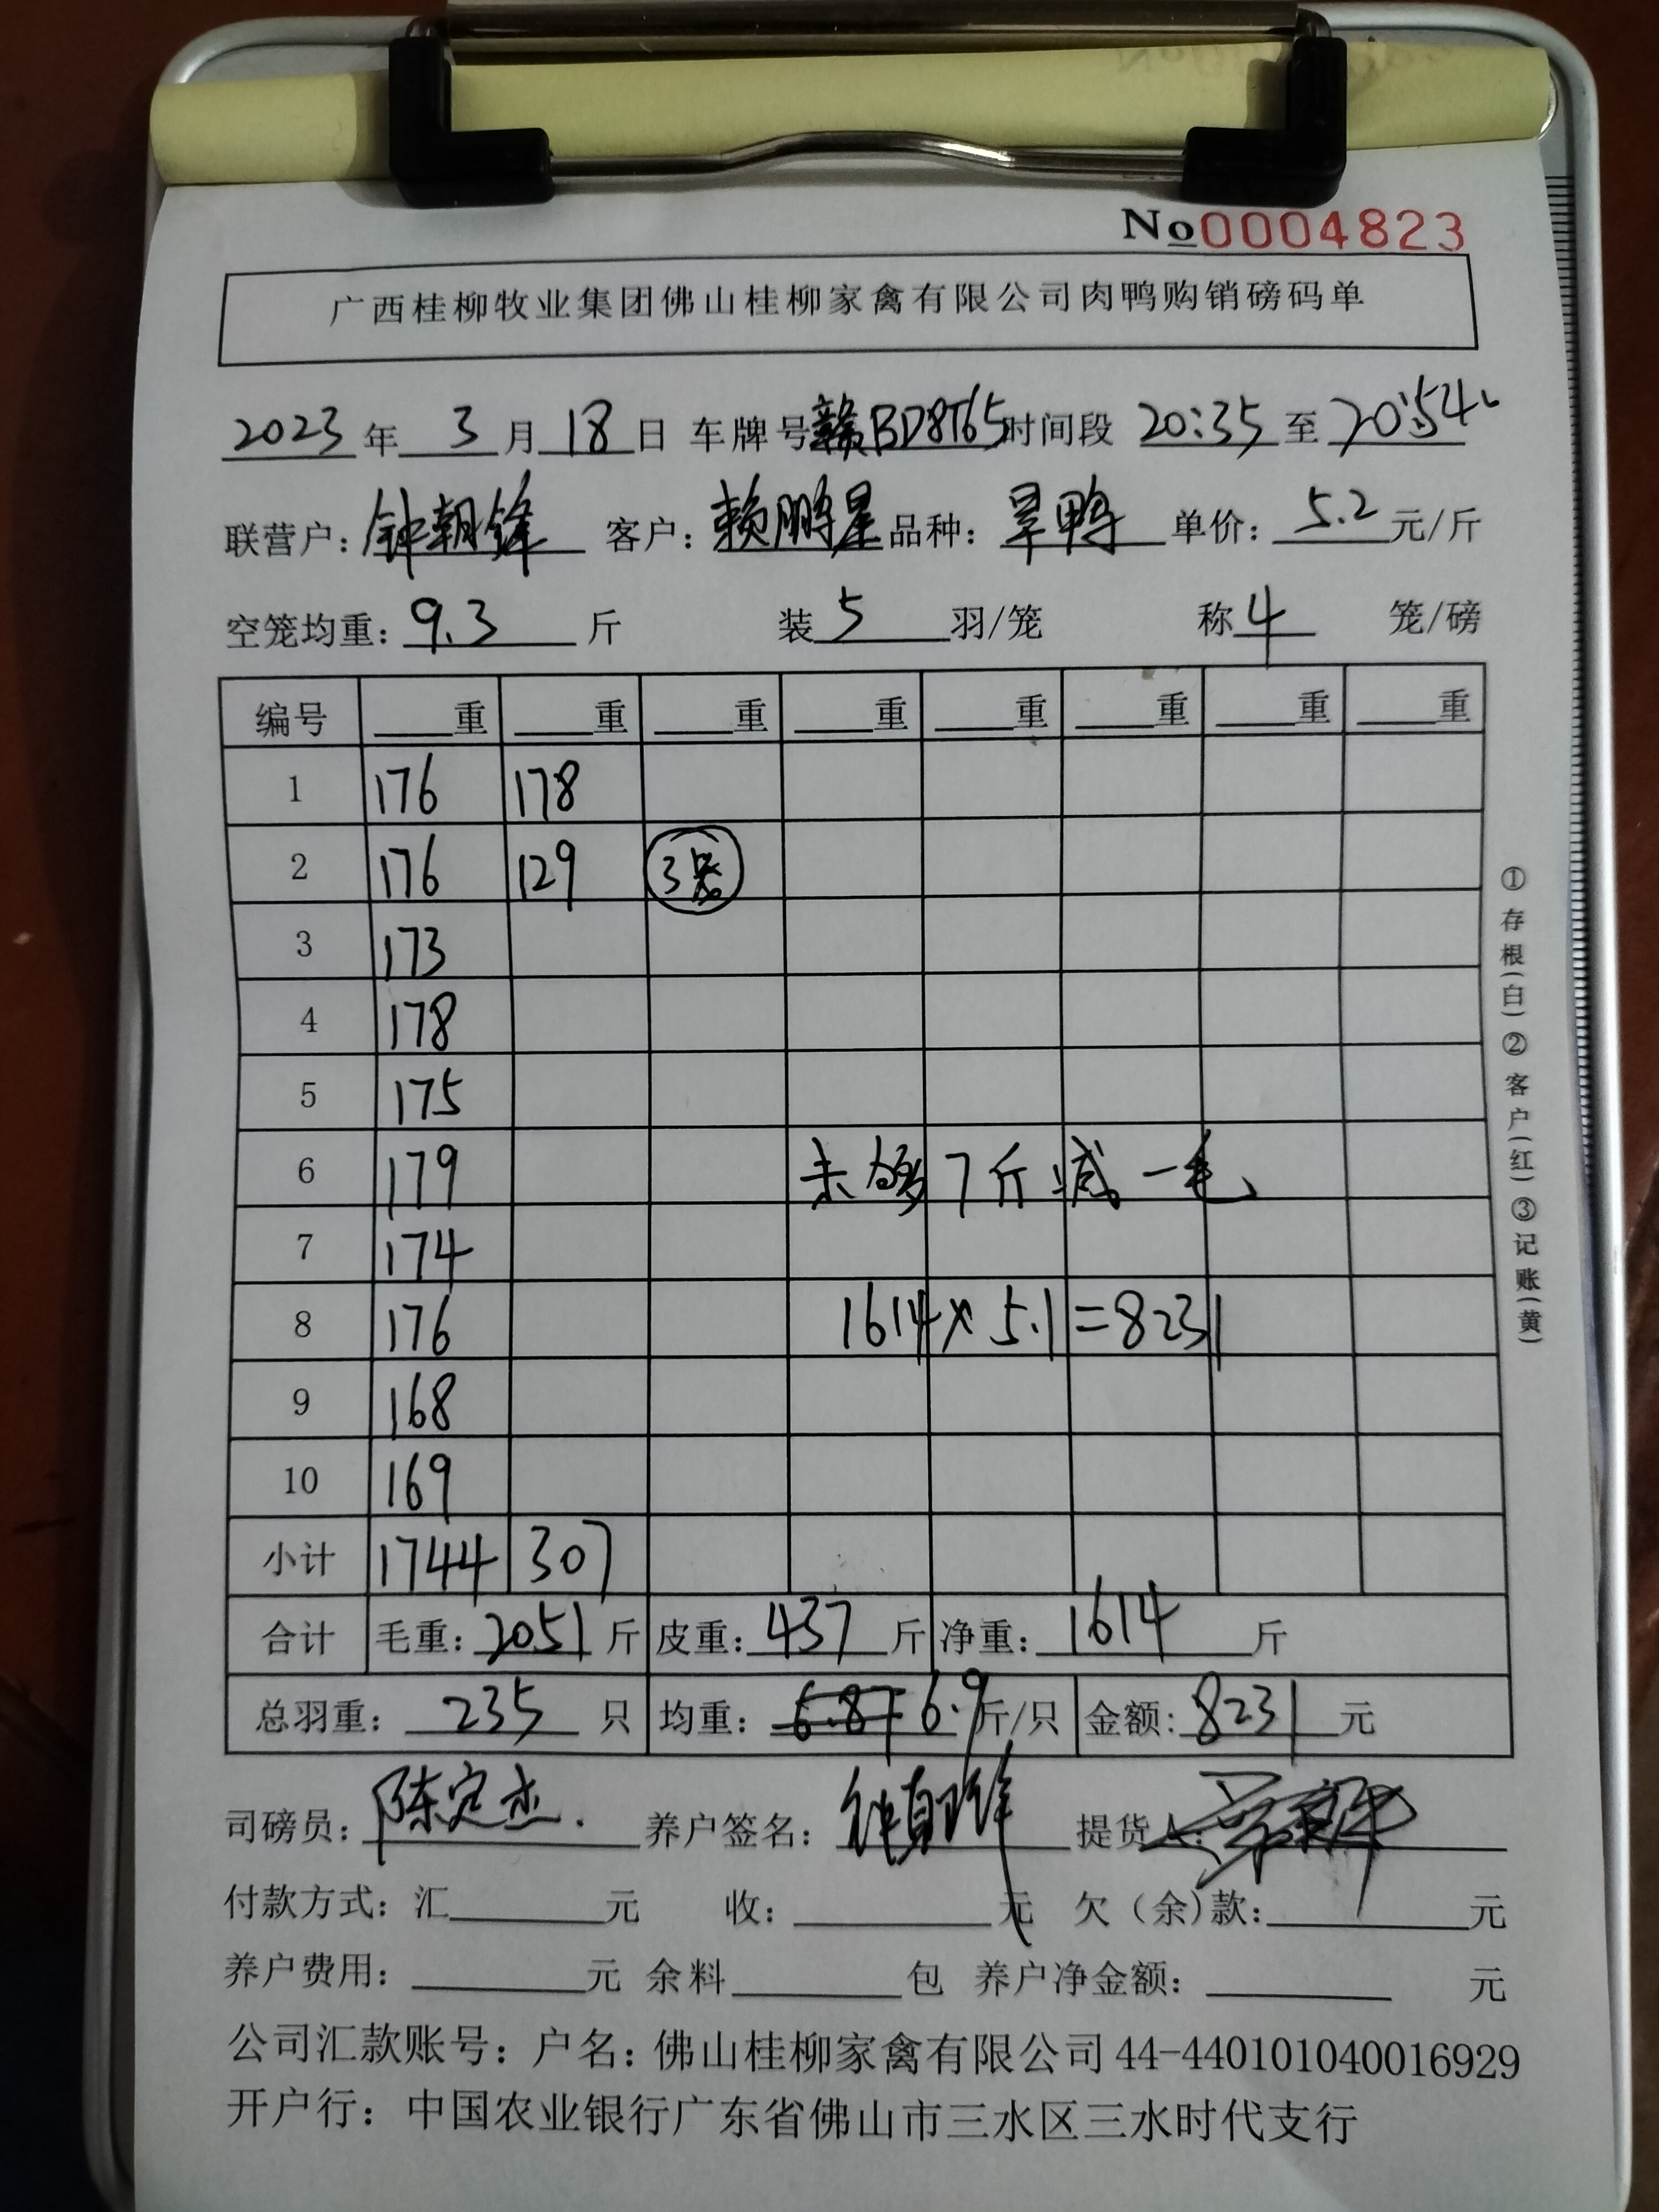 No0004823
广西桂柳牧业集团佛山桂柳家禽有限公司肉鸭购销磅码单
2023年 3月18日 车牌号赣BD8T65时间段 20:35至20:54
联营户:钟朝锋 客户:赖鹏星 品种:旱鸭 单价:5.2元/斤
空笼均重:9.3斤 装5羽/笼 称4 笼/磅
编号 重 重 重 重 重 重 重 重
1 176 178
2 176 129 3笼
3 173
4 178
5 175
6 179 未够7斤减一毛
7 174
8 176 1614×5.1=8231
9 168
10 169
小计 1744 307
合计 毛重:2051斤 皮重:437斤 净重:1614斤
总羽重:235只 均重:6.87 6.9斤/只 金额:8231元
司磅员:陈定杰. 养户签名:钟朝锋 提货人:
付款方式:汇 元 收: 元 欠(余)款: 元
养户费用: 元 余料 包 养户净金额: 元
公司汇款账号:户名:佛山桂柳家禽有限公司44-440101040016929
开户行:中国农业银行广东省佛山市三水区三水时代支行
①存根(白)②客户(红)③记账(黄)